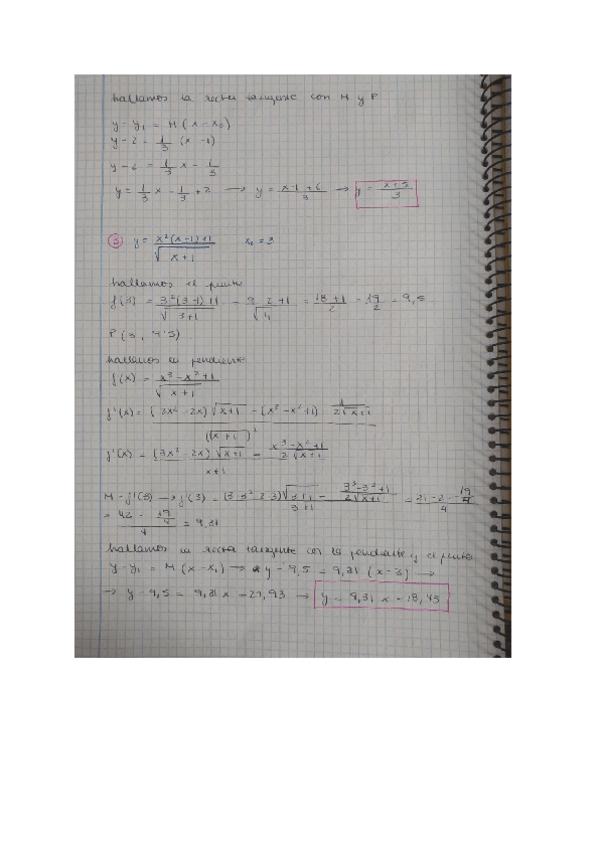 hallamos la recta tangente con M y P
y - y₁ = M (x - x₀)
y - 2 = 1/3 (x - 1)
y - 2 = 1/3 x - 1/3
y = 1/3 x - 1/3 + 2 → y = (x-1+6)/3 → y = (x+5)/3
③ y = (x²(x-1)+1)/√(x+1) x₁ = 3
hallamos el punto
f(3) = (3²(3-1)+1)/√(3+1) = (9·2+1)/√4 = (18+1)/2 = 19/2 = 9,5
P(3, 9'5)
hallamos la pendiente
f(x) = (x³-x²+1)/√(x+1)
f'(x) = ((3x²-2x)√(x+1) - (x³-x²+1) 1/(2√(x+1)))/(√(x+1))²
f'(x) = ((3x²-2x)√(x+1) - (x³-x²+1)/(2√(x+1)))/(x+1)
M = f'(3) → f'(3) = ((3·3²-2·3)√(3+1) - (3³-3²+1)/(2√(x+1)))/(3+1) = (21·2-19/4)/4
= (42 - 19/4)/4 = 9,31
hallamos la recta tangente con la pendiente y el punto
y - y₁ = M (x-x₁) → y - 9,5 = 9,31 (x-3) →
→ y - 9,5 = 9,31x - 27,93 → y = 9,31x - 18,43